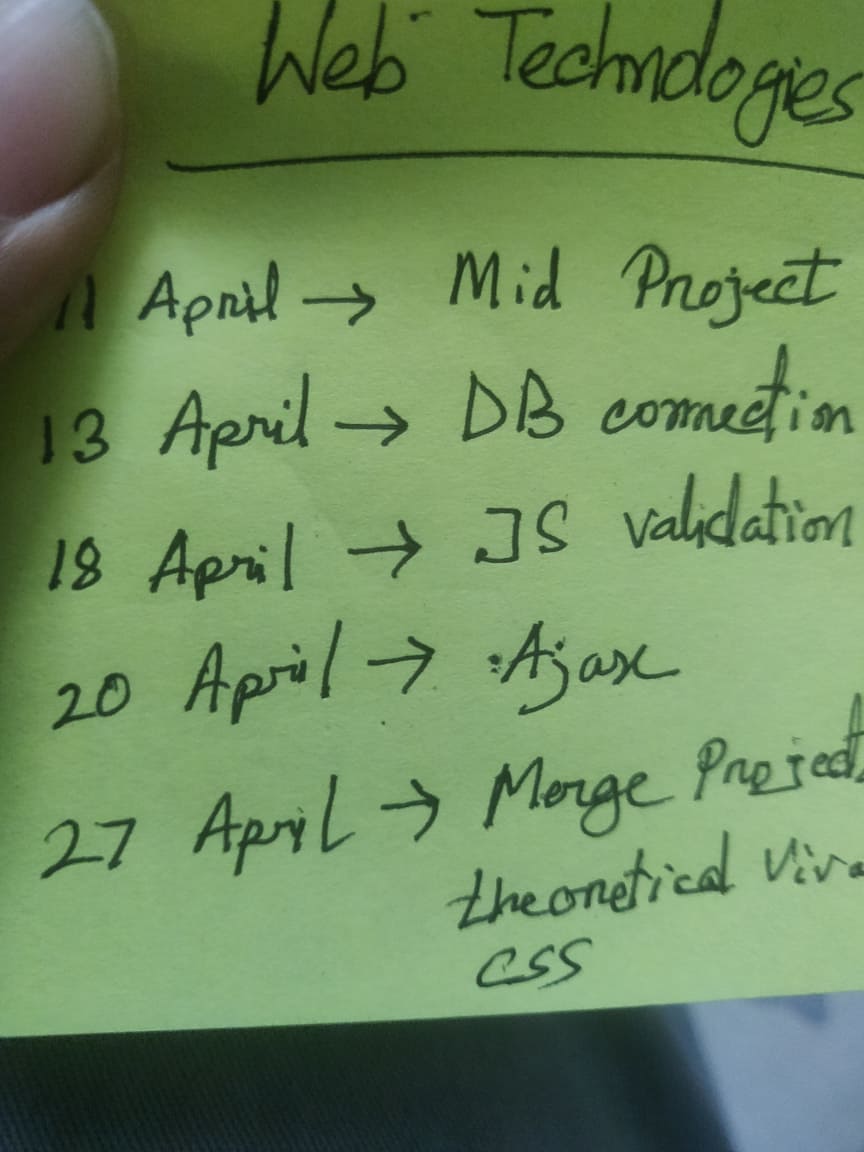 Web Technologies
11 April → Mid Project
13 April → DB connection
18 April → JS validation
20 April → Ajax
27 April → Merge Project,
theoretical Viva
CSS